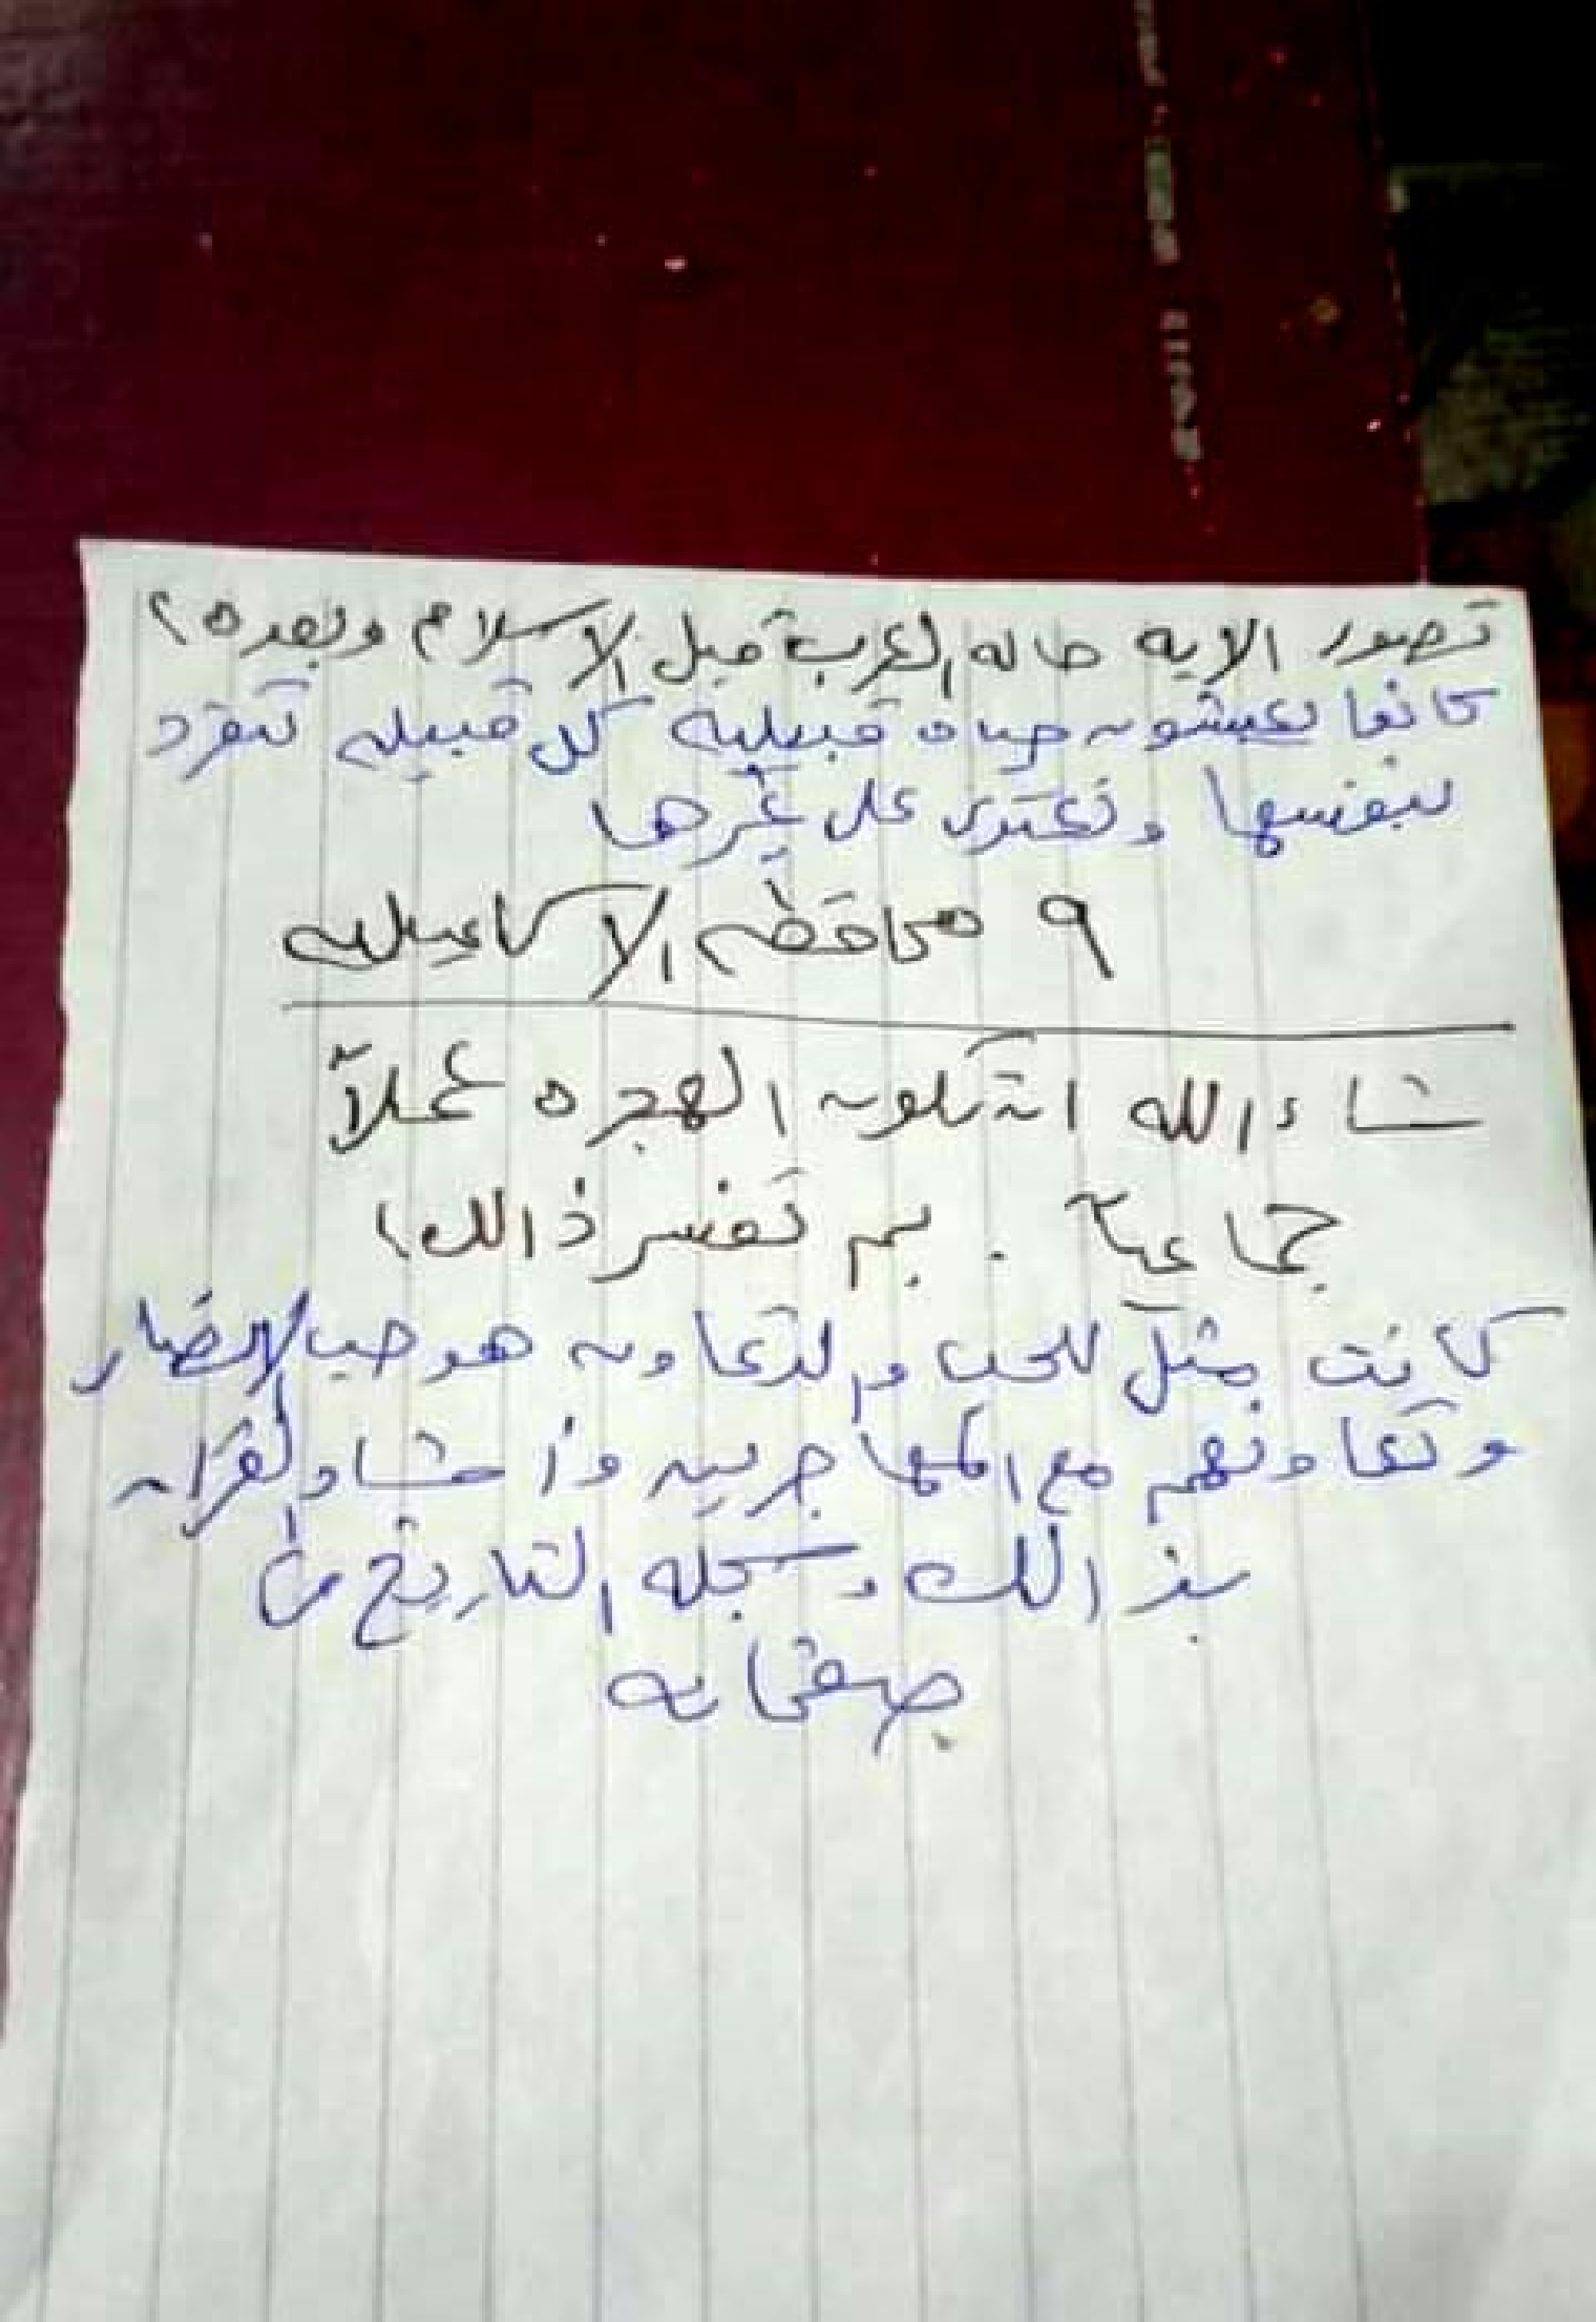 تصور الايه حاله العرب قبل الاسلام وبعده ؟
كانوا يعيشون حياه قبيلية كل قبيله تنفرد
بنفسها وتعتدى على غيرها
٩ محافظه الاسماعيليه
شاء الله ان تكون الهجره عملاً
جماعية . بم تفسر ذالك؟
كانت مثل للحب والتعاون هو حب الانصار
وتعاونهم مع المهاجرين وأشاد القران
بذالك وسجله التاريخ فى
صفحاته